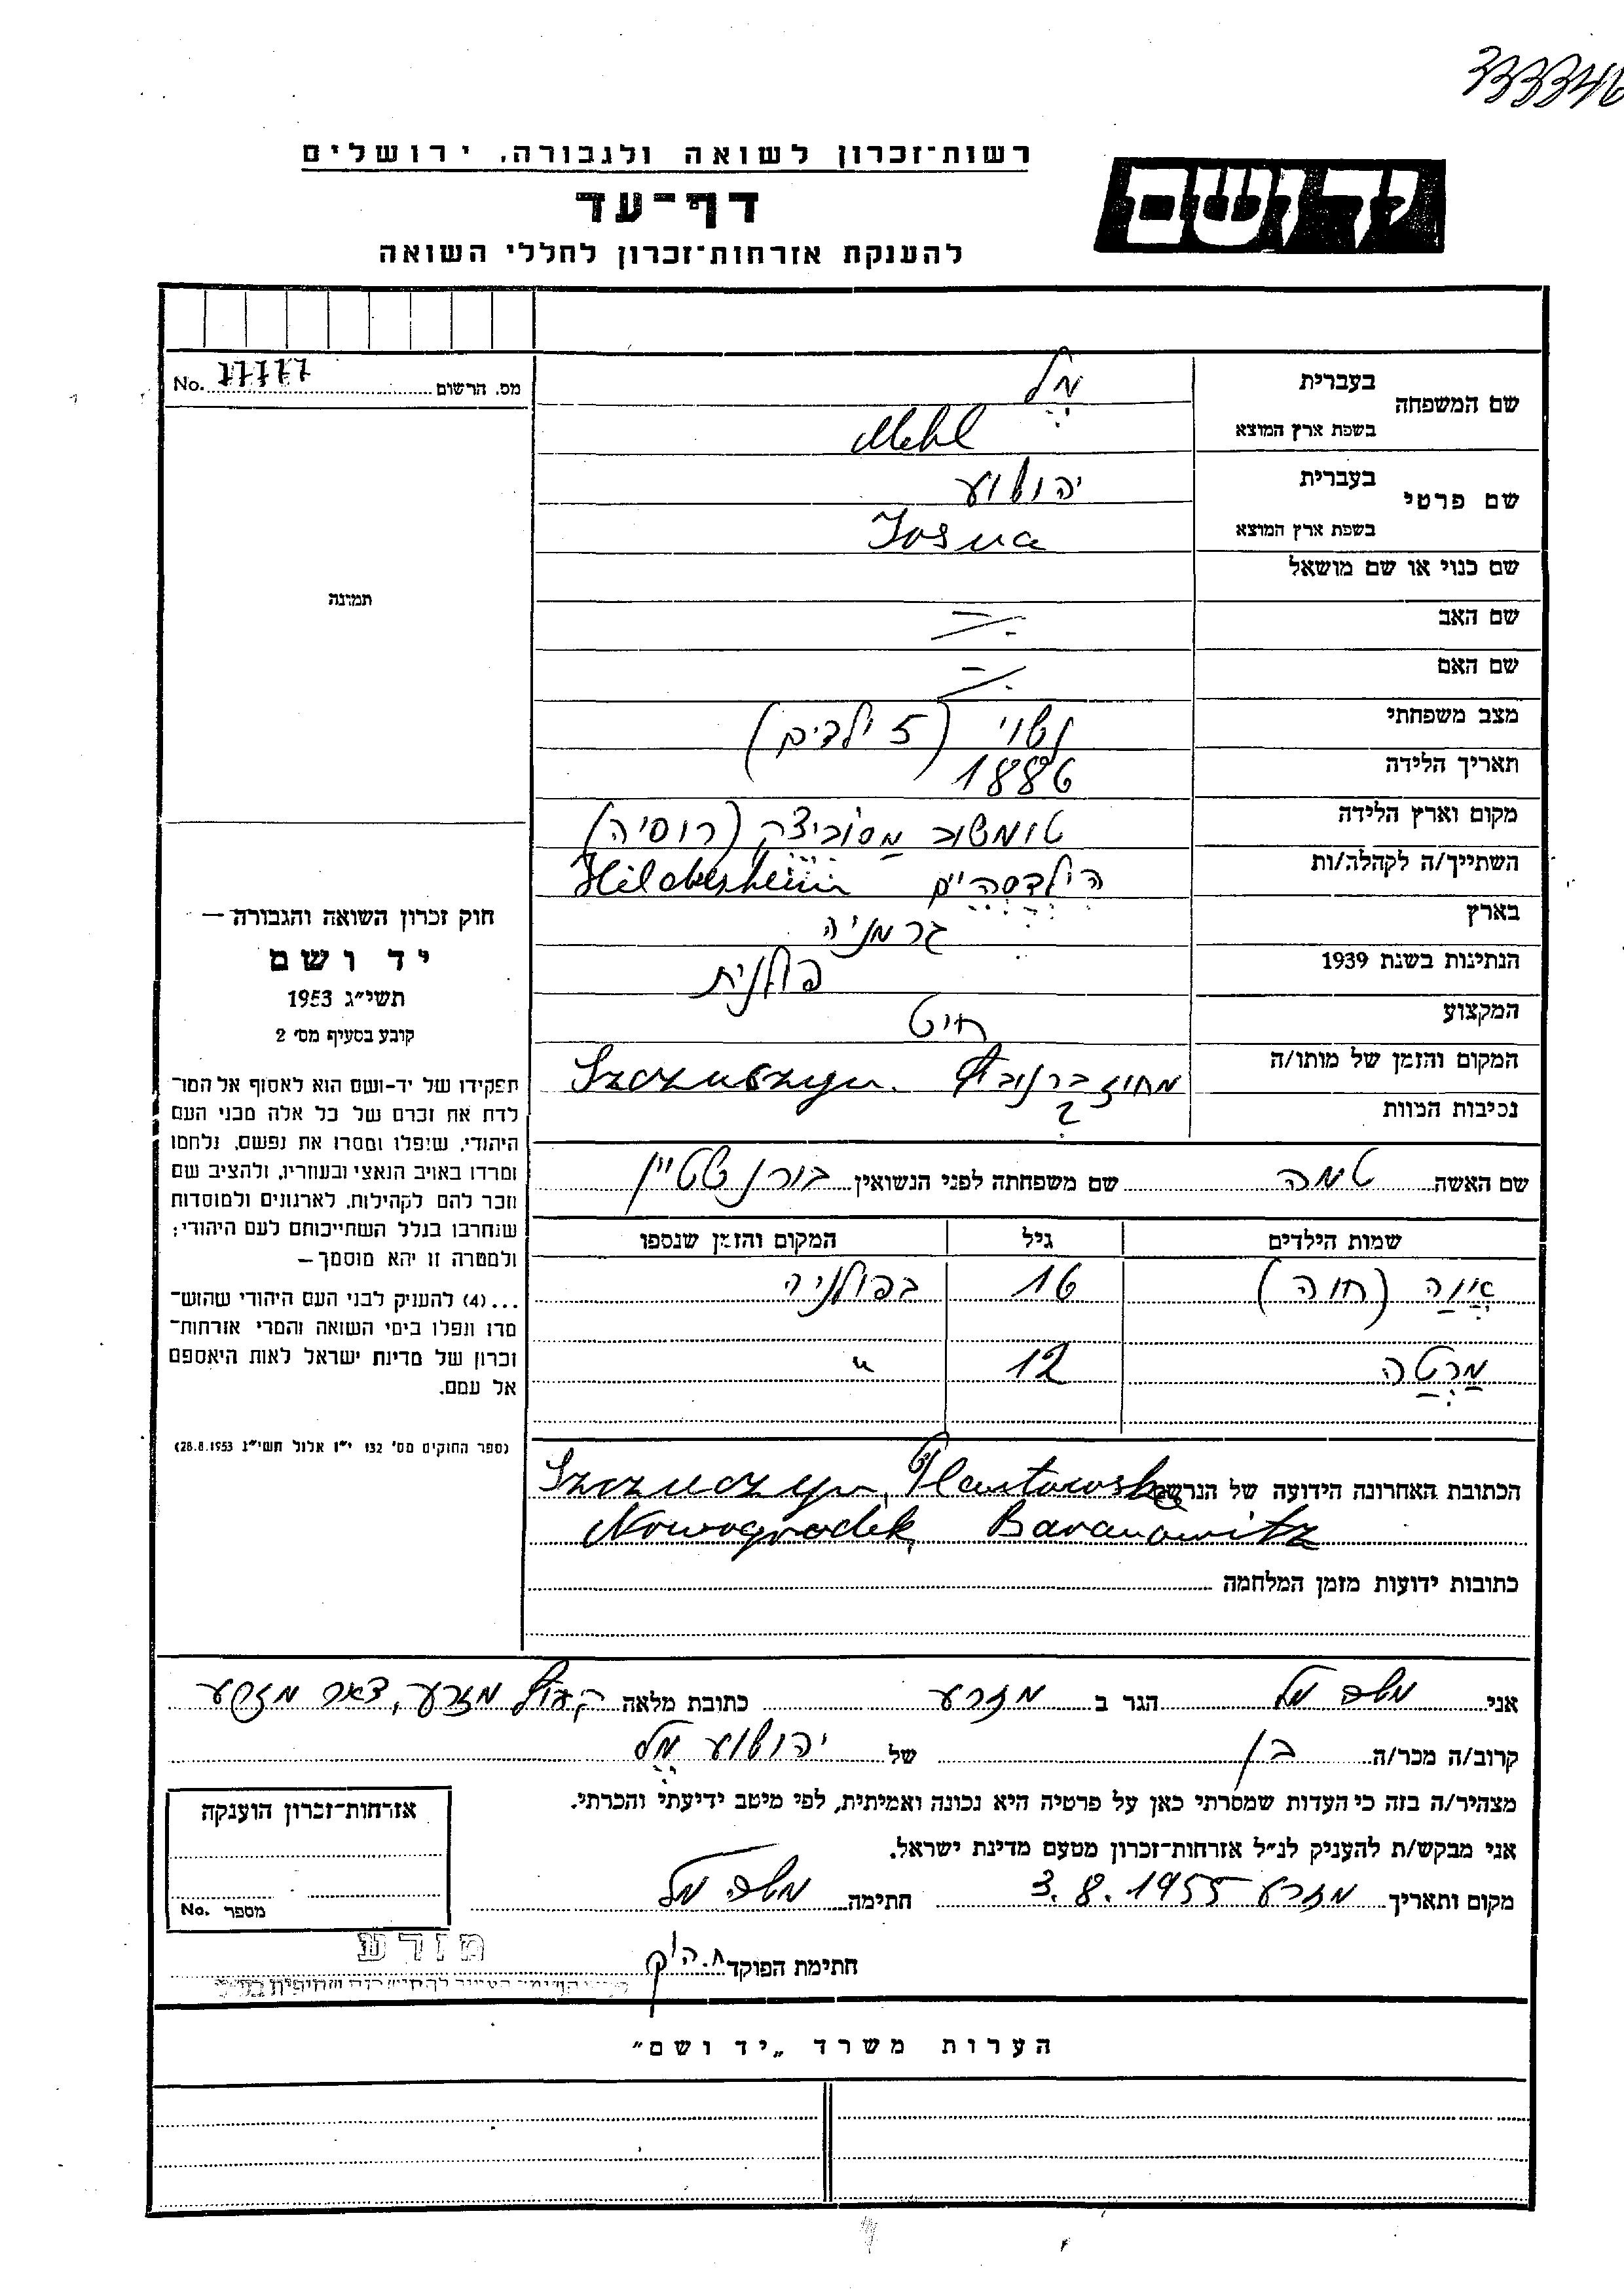 333346
רשות־זכרון לשואה ולגבורה, ירושלים
יד ושם
דף־עד
להענקת אזרחות־זכרון לחללי השואה
מס. הרשום No. 77777
תמונה
שם המשפחה בעברית מל
בשפת ארץ המוצא Mehl
שם פרטי בעברית יהושוע
בשפת ארץ המוצא Josua
שם כנוי או שם מושאל
שם האב -/.
שם האם -/.
מצב משפחתי נשוי (5 ילדים)
תאריך הלידה 1886
מקום וארץ הלידה טומשוב מסוביצק (רוסיה)
השתייך/ה לקהלה/ות הילדסהיים Hildesheim
בארץ גרמניה
הנתינות בשנת 1939 פולנית
המקצוע חיט
המקום והזמן של מותו/ה Szczuczyn.
נסיבות המוות ?
שם האשה טמה שם משפחתה לפני הנשואין בורנשטיין
שמות הילדים גיל המקום והזמן שנספו
אווה (חוה) 16 בפולניה
מרטה 12 "
הכתובת האחרונה הידועה של הנרשם Szczuczyn,
Nowogrodek, Baranowitz
כתובות ידועות מזמן המלחמה
חוק זכרון השואה והגבורה —
יד ושם
תשי״ג 1953
קובע בסעיף מס׳ 2
תפקידו של יד-ושם הוא לאסוף אל המו־
לדת את זכרם של כל אלה מבני העם
היהודי, שנפלו ומסרו את נפשם, נלחמו
ומרדו באויב הנאצי ובעוזריו, ולהציב שם
וזכר להם לקהילות, לארגונים ולמוסדות
שנחרבו בגלל השתייכותם לעם היהודי;
ולמטרה זו יהא מוסמך —
...(4) להעניק לבני העם היהודי שהוש־
מדו ונפלו בימי השואה והמרי אזרחות־
זכרון של מדינת ישראל לאות היאספם
אל עמם.
(ספר החוקים מס׳ 132 י״ז אלול תשי״ג 28.8.1953)
אני משה מל הגר ב מזרע כתובת מלאה מזרע, דאר מזרע
קרוב/ה מכר/ה בן של יהושוע מל
מצהיר/ה בזה כי העדות שמסרתי כאן על פרטיה היא נכונה ואמיתית, לפי מיטב ידיעתי והכרתי.
אני מבקש/ת להעניק לנ״ל אזרחות־זכרון מטעם מדינת ישראל.
מקום ותאריך מזרע 3.8.1955 חתימה משה מל
אזרחות־זכרון הוענקה
מספר No.
חתימת הפוקד
מזרע
הערות משרד „יד ושם״